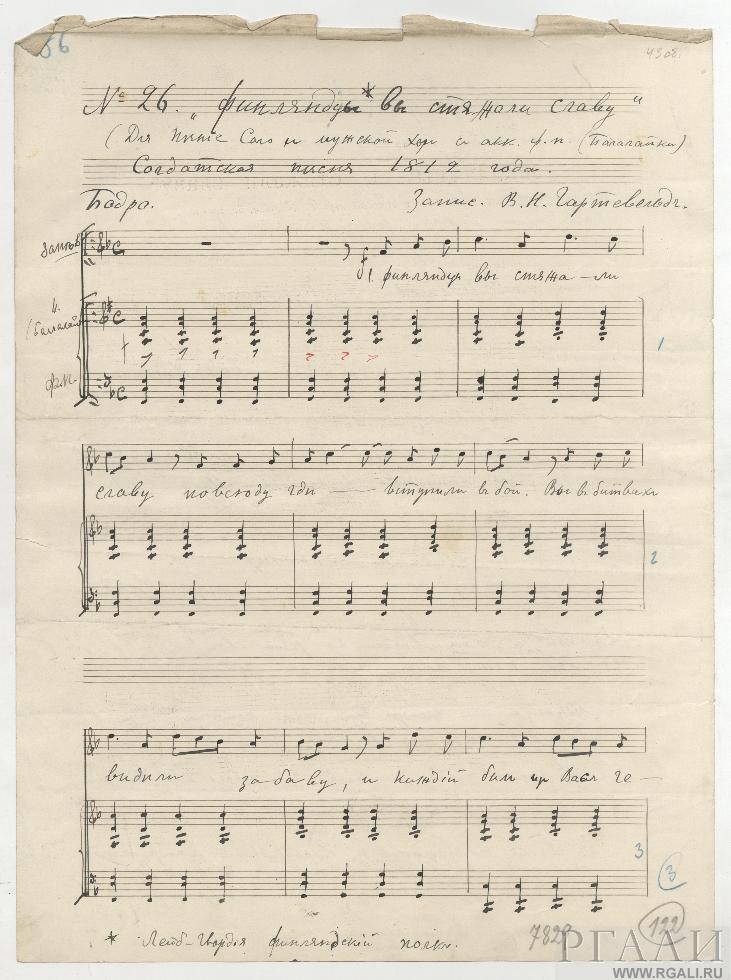 56
43 об.
№ 26. „Финляндцы* вы стяжали славу“
(Для Соло и мужской хор с акк. ф.п. (балалайки)
Солдатская песня 1812 года.
Бодро. Запис. В. Н. Гартевельд.
запев
1. Финляндцы вы стяжа – ли
(балалайки)
f
1
ф.п.
славу повсюду где — вступили въ бой. Вы въ битвахъ
2
видѣли за-баву, и каждый былъ изъ Васъ ге –
3
3
* Лейб-Гвардія Финляндскій полкъ.
782
122
РГАЛИ
WWW.RGALI.RU